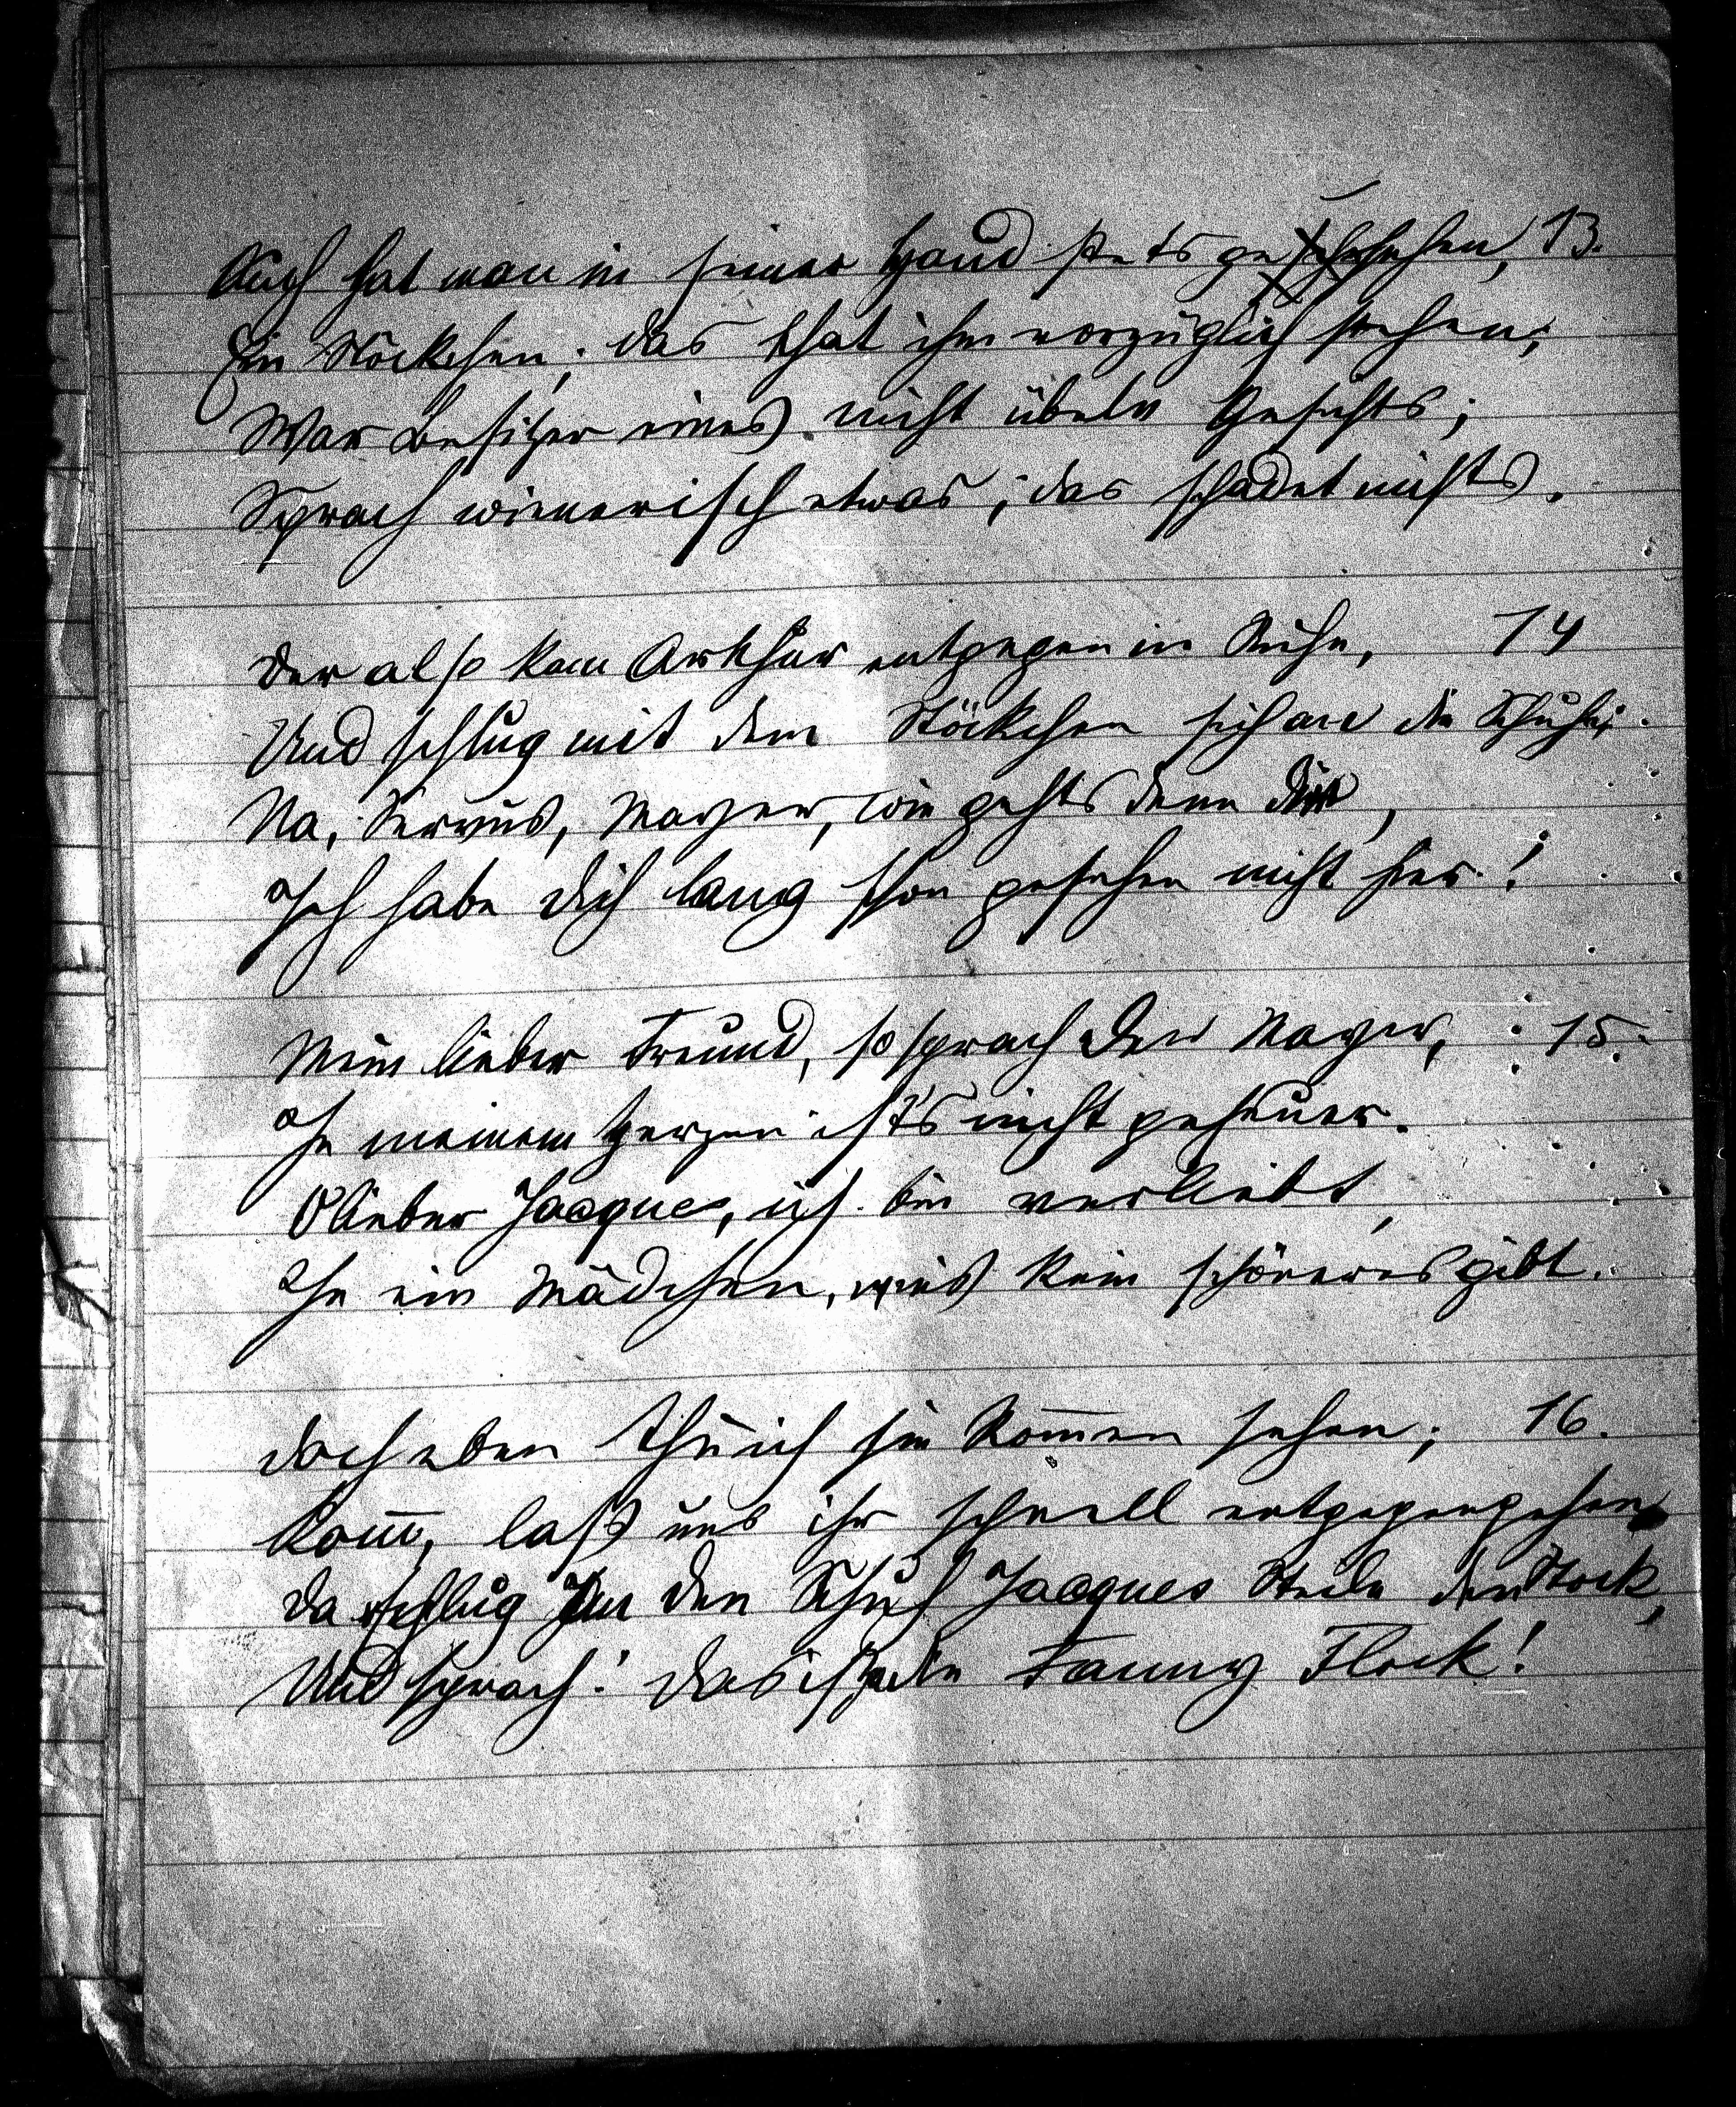 Auch hat man in seiner Hand stets gesehen, 13.
Ein Stöckchen; das that ihm vorzüglich stehen;
War Besitzer eines nicht übeln Gesichts;
Sprach wienerisch etwas; das schadet nichts.
Der also kam Arthur entgegen in Ruhe, 14
Und schlug mit dem Stöckchen sich an die Schuhe;
Na, Servus, Mayer, wie gehts denn dir,
Ich habe dich lang schon gesehen nicht hier!
Mein lieber Freund, so sprach der Mayer, 15.
In meinem Herzen ist's nicht geheuer.
O lieber Jacques, ich bin verliebt,
In ein Mädchen, wies kein schöneres gibt.
Doch eben thu ich sie kom̄en sehen; 16.
Kom̄, laß uns ihr schnell entgegengehen
Da schlug an den Schuh Jacques Stein den Stock,
Und sprach: Das ist ja die Fanny Flock!